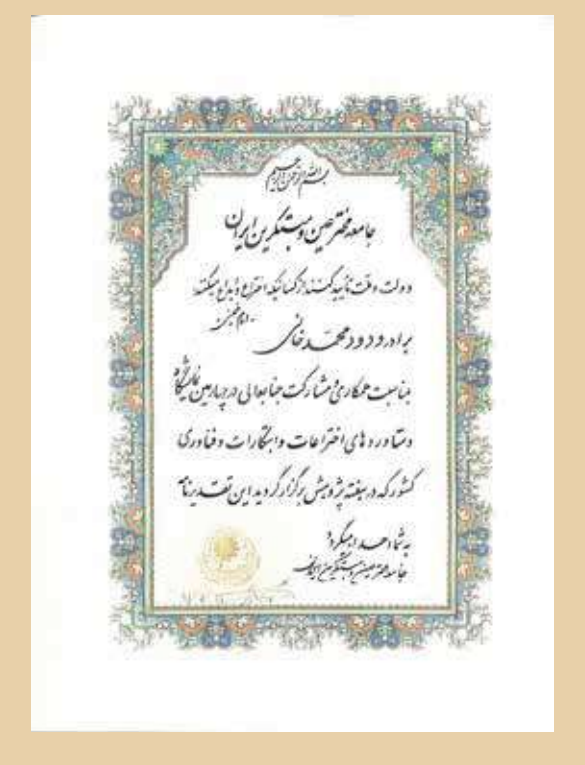 بسم الله الرحمن الرحیم
جامعه مخترعین و مبتکرین ایران
دولت و ملت تأیید کنند از کسانیکه اختراع و ابداع میکنند
امام خمینی
برادر ودود محمدخانی
بمناسبت همکاری و مشارکت جنابعالی در چهارمین نمایشگاه
دستاوردهای اختراعات و ابتکارات و فناوری
کشور که در هفته پژوهش برگزار گردید این تقدیرنامه
به شما اهداء میگردد
جامعه مخترعین و مبتکرین ایران